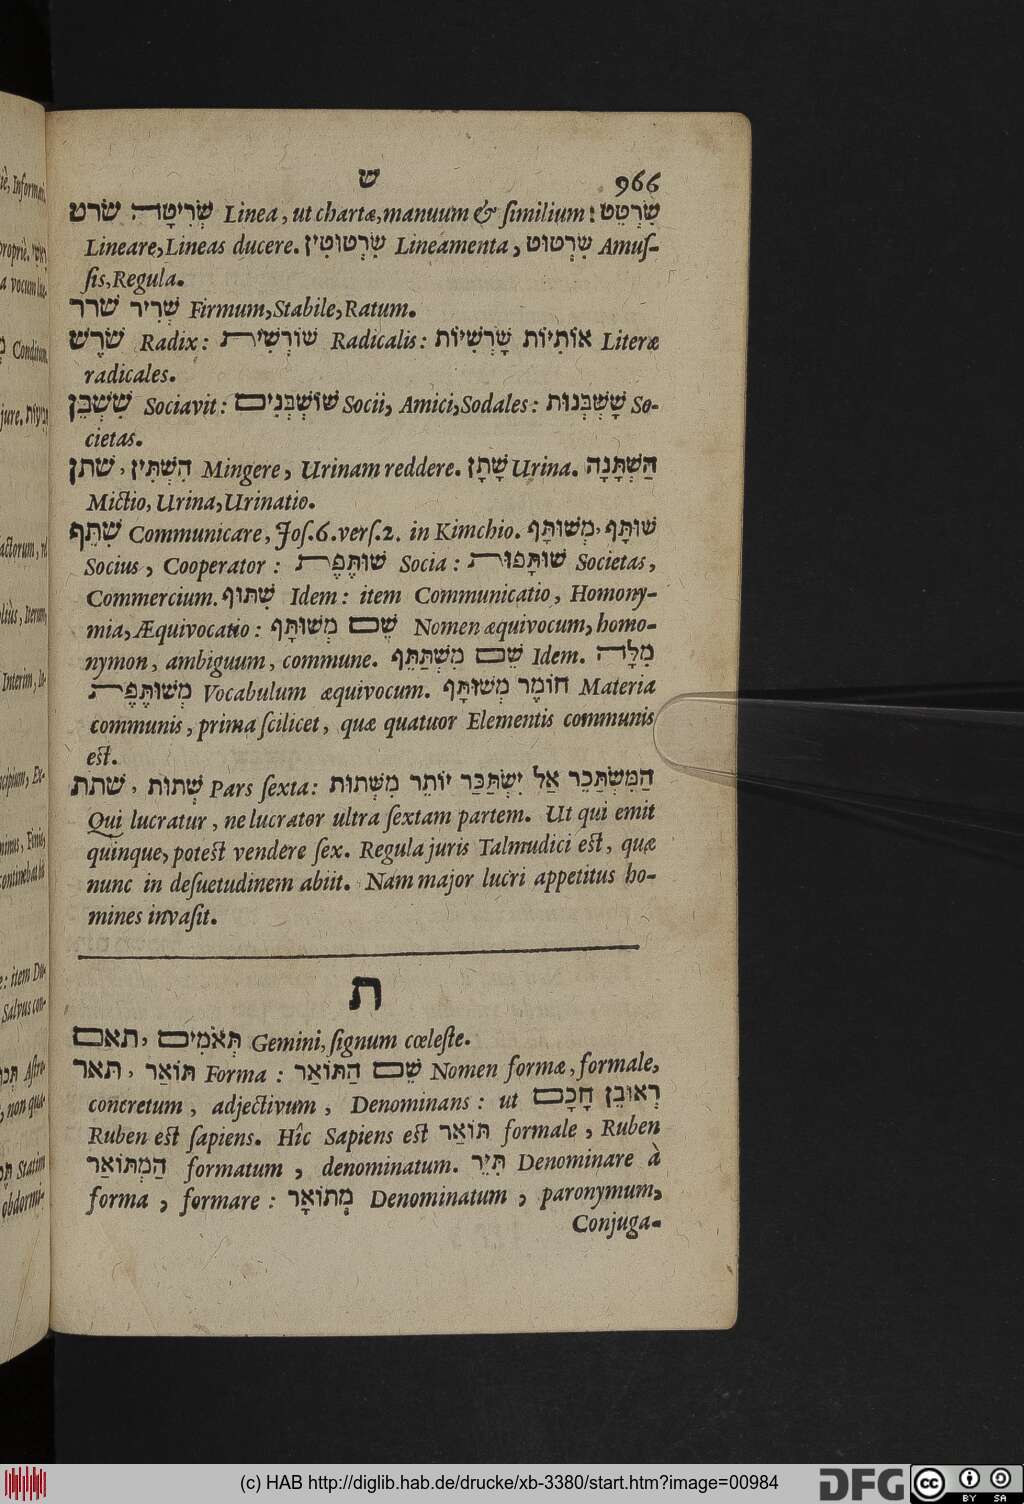 ש 966
שרט שְׂרִיטָה Linea, ut chartæ, manuum & ſimilium: שִׂרְטֵט
Lineare, Lineas ducere. שִׂרְטוּטִין Lineamenta, שִׂרְטוּט Amuſ-
ſis, Regula.
שרר שְׁרִיר Firmum, Stabile, Ratum.
שֹׁרֶשׁ Radix: שׁוֹרְשִׁית Radicalis: אוֹתִיּוֹת שָׁרְשִׁיּוֹת Literæ
radicales.
שִׁשְׁבֵּן Sociavit: שׁוֹשְׁבְּנִים Socii, Amici, Sodales: שָׁשְׁבְּנוּת So-
cietas.
שתן, הִשְׁתִּין Mingere, Urinam reddere. שָׁתָן Urina. הַשְׁתָּנָה
Mictio, Urina, Urinatio.
שִׁתֵּף Communicare, Joſ. 6. verſ. 2. in Kimchio. שׁוּתָּף, מְשׁוּתָּף
Socius, Cooperator: שׁוּתֶּפֶת Socia: שׁוּתָּפוּת Societas,
Commercium. שִׁתּוּף Idem: item Communicatio, Homony-
mia, Æquivocatio: שֵׁם מְשׁוּתָּף Nomen æquivocum, homo-
nymon, ambiguum, commune. שֵׁם מִשְׁתַּתֵּף Idem. מִלָּה
מְשׁוּתֶּפֶת Vocabulum æquivocum. חוֹמֶר מְשׁוּתָּף Materia
communis, prima ſcilicet, quæ quatuor Elementis communis
eſt.
שתת, שְׁתוּת Pars ſexta: הַמִּשְׂתַּכֵר אַל יִשְׂתַּכַּר יוֹתֵר מִשְּׁתוּת
Qui lucratur, ne lucrator ultra ſextam partem. Ut qui emit
quinque, poteſt vendere ſex. Regula juris Talmudici eſt, quæ
nunc in deſuetudinem abiit. Nam major lucri appetitus ho-
mines invaſit.
ת
תאם, תְּאֹמִים Gemini, ſignum cœleſte.
תאר, תּוֹאַר Forma: שֵׁם הַתּוֹאַר Nomen formæ, formale,
concretum, adjectivum, Denominans: ut רְאוּבֵן חָכָם
Ruben eſt ſapiens. Hîc Sapiens eſt תּוֹאַר formale, Ruben
הַמְתוֹאַר formatum, denominatum. תִּיֵּר Denominare à
forma, formare: מְתוֹאָר Denominatum, paronymum,
Conjuga-
(c) HAB http://diglib.hab.de/drucke/xb-3380/start.htm?image=00984
DFG
cc BY SA